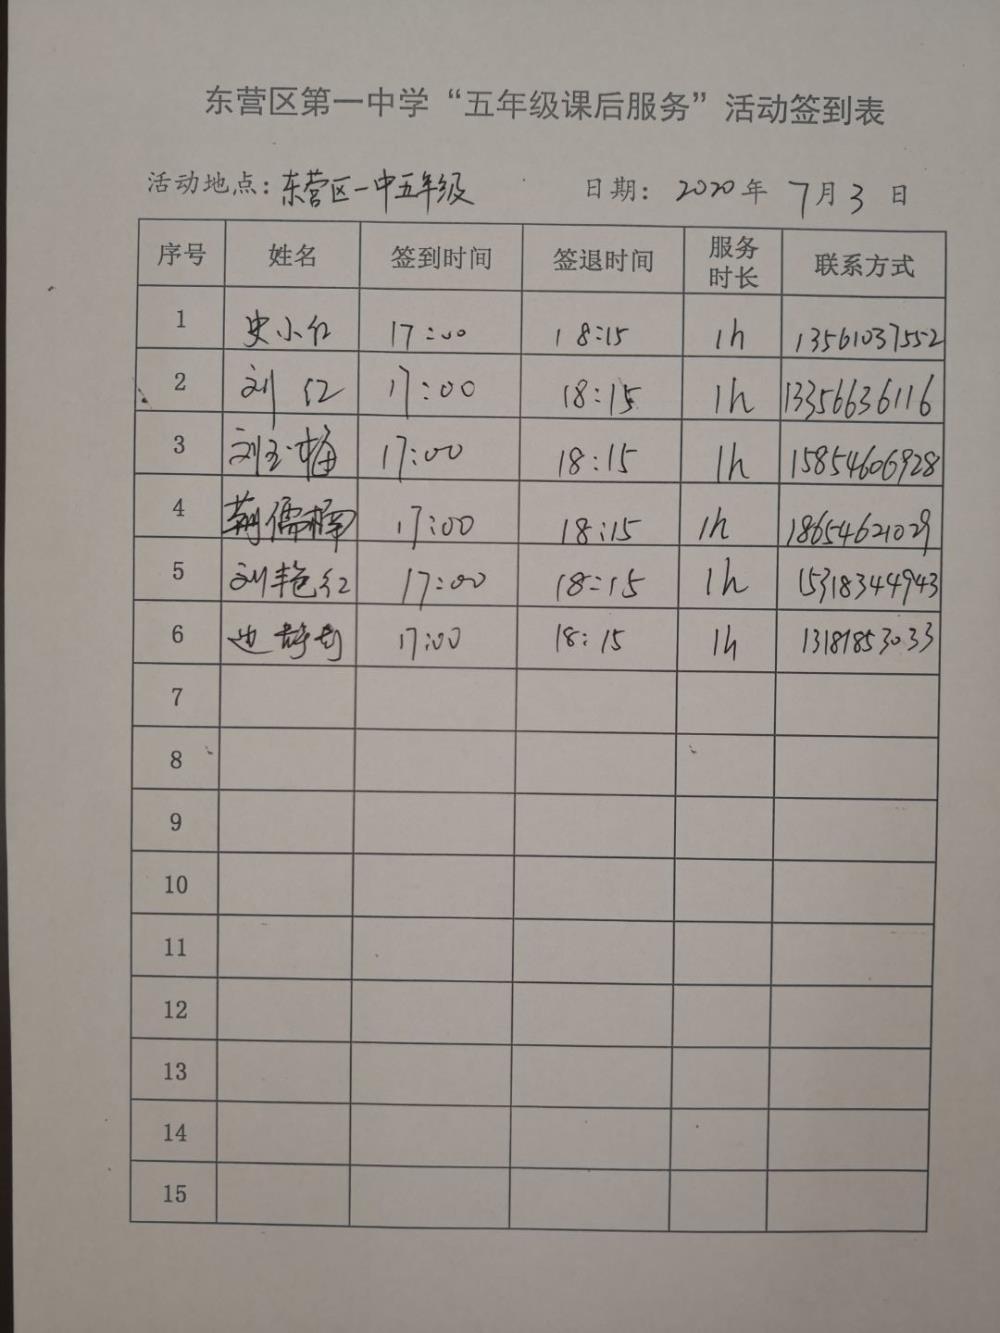 东营区第一中学“五年级课后服务”活动签到表
活动地点：东营区一中五年级 日期：2020年7月3日
序号 姓名 签到时间 签退时间 服务时长 联系方式
1 史小红 17:00 18:15 1h 13561037552
2 刘红 17:00 18:15 1h 13356636116
3 刘玉梅 17:00 18:15 1h 15854606928
4 荆儒楠 17:00 18:15 1h 18654621029
5 刘艳红 17:00 18:15 1h 15318344943
6 17:00 18:15 1h 13181853033
7
8
9
10
11
12
13
14
15